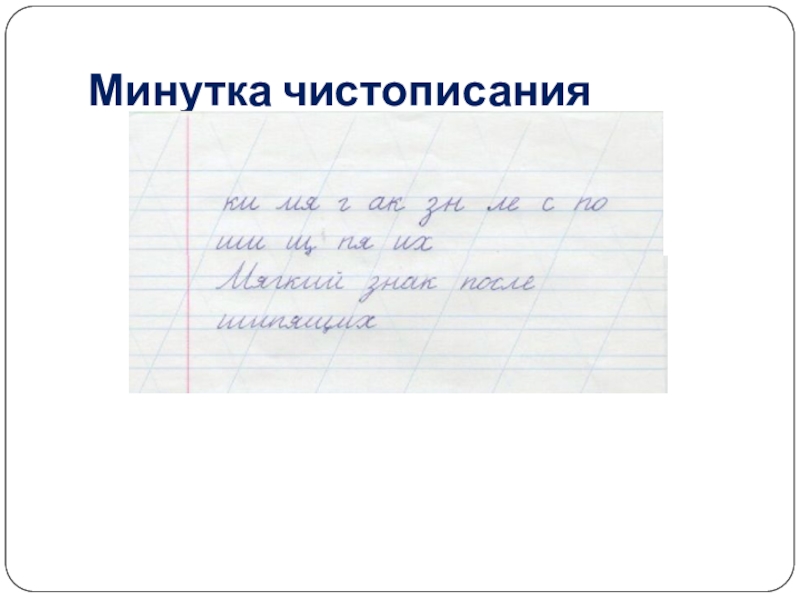 Минутка чистописания
ки мя г ак зн ле с по
ши щ пя их
Мягкий знак после
шипящих